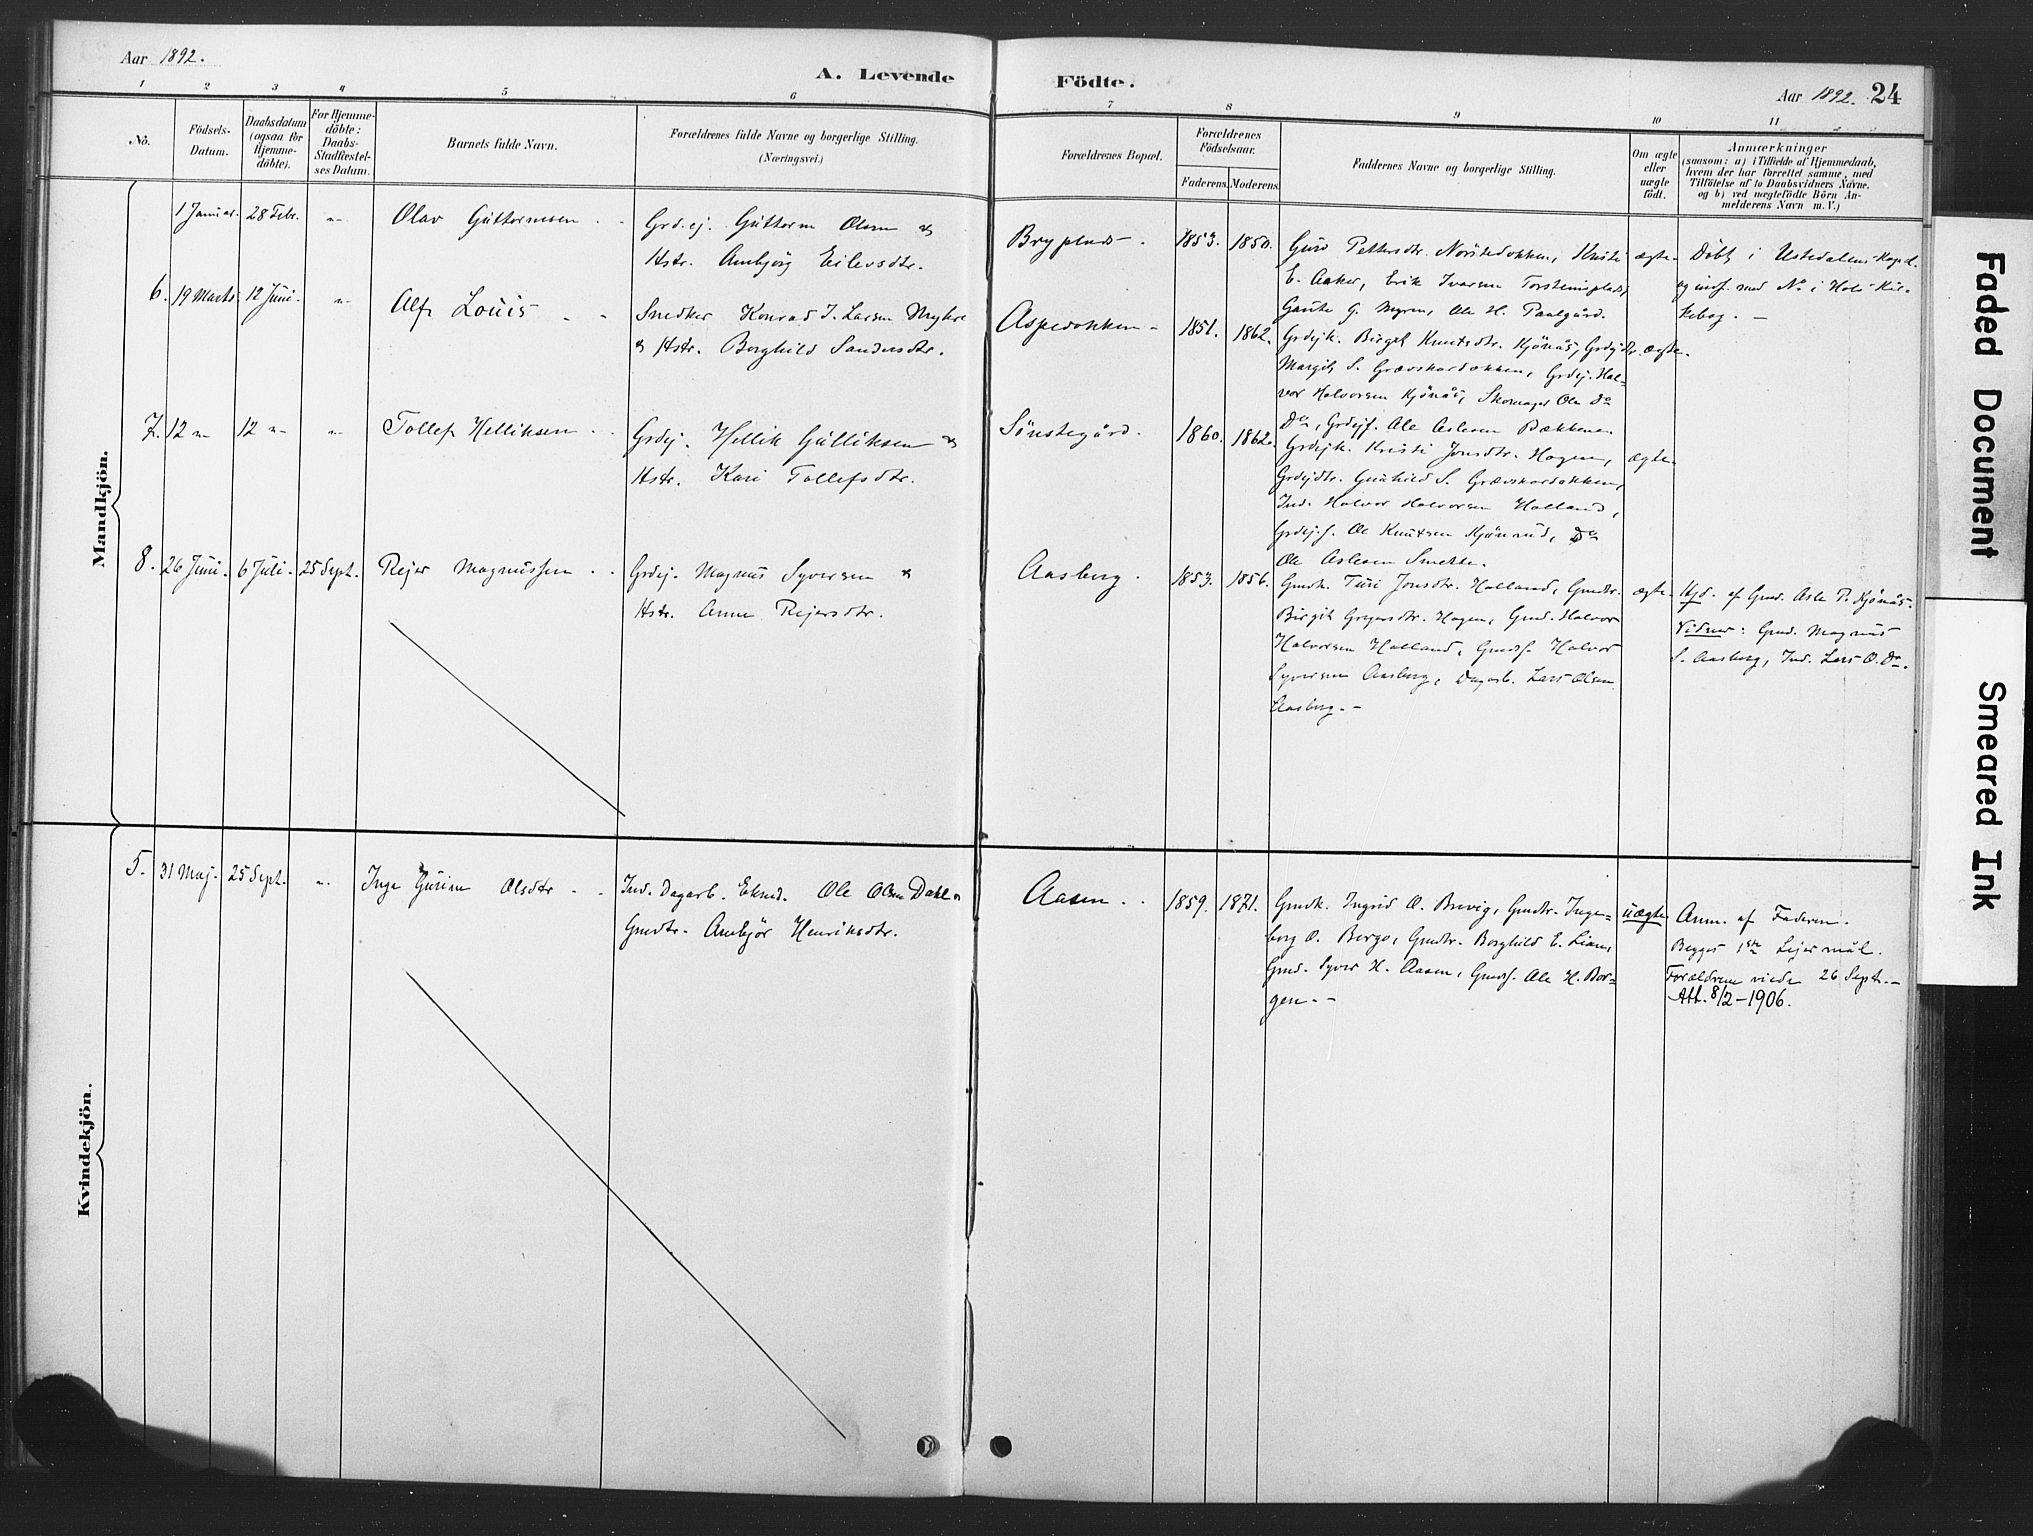 Aar 1892.
A. Levende Födte.
Aar 1892. 24
1 2 3 4 5 6 7 8 9 10 11
No.
Födsels-
Datum.
Daabsdatum
(ogsaa for
Hjemme-
döbte).
For Hjemme-
döbte:
Daabs-
Stadfæstel-
ses Datum.
Barnets fulde Navn.
Forældrenes fulde Navne og borgerlige Stilling.
(Næringsvei.)
Forældrenes Bopæl.
Forældrenes
Födselsaar.
Faderens. Moderens.
Faddernes Navne og borgerlige Stilling.
Om ægte
eller
uægte
födt.
Anmærkninger
(saasom: a) i Tilfælde af Hjemmedaab,
hvem der har forrettet samme, med
Tilföielse af to Daabsvidners Navne.
og b) ved uægtefödte Börn An-
melderens Navn m. V.)
Mandkjön.
1 Januar. 28 Febr. -"- Olav Guttormsen - -
Grdej. Guttorm Olsen &
Hstr. Ambjörg Eilevsdtr.
Bryplads -. 1853. 1850.
Guro Pettersdtr. Norstedokken, Kristi
E. Aaker, Erik Ivarsen Torsteinsplads,
Gaute G. Myren, Ole H. Paalgård.
ægte-
Döbt i Ustedalens Kapel
og indf. med No i Hols Kir-
kebog. -
6. 19 Marts. 12 Juni. -"- Alf Louis - -
Snedker Konrad J. Larsen Myhre
& Hstr. Borghild Sandersdtr.
Aspedokken - 1851. 1862.
Grdejk. Birget Knutsdtr. Kjönås, Grdejdtr.
Margit S. Grævskardokken, Grdej. Hal-
vor Halvorsen Kjönås, Skomager Ole Do
Do, Grdejf. Ole Aslesen Bækkene.
ægte.
7. 12 -"- 12 -"- -"- Tollef Helliksen - -
Grdej. Hellik Gulliksen &
Hstr. Kari Tollefsdtr.
Sönstegård. 1860. 1862.
Grdejk. Kristi Jonsdtr. Hagen,
Grdejdtr. Gunhild S. Grævskardokken,
Ind. Halvor Halvorsen Holland,
Grdejf. Ole Knutsen Kjönnås, Do
Ole Aslesen Smette.
ægte.
8. 26 Juni. 6 Juli. 25 Sept. Rejer Magnussen - -
Grdej. Magnus Syversen &
Hstr. Anne Rejersdtr.
Aasberg. 1853. 1856.
Gmdk. Turi Jonsdtr. Holland, Gmdtr.
Birgit Gregersdtr. Hagen, Gmd. Halvor
Halvorsen Holland, Gmdsf. Halvor
Syversen Aasberg, Dagarb. Lars Olsen
Aasberg. -
ægte-
Hjd. af Gmd. Asle P. Kjönås.
Vidner: Gmd. Magnus
S. Aasberg, Ind. Lars O. Do.
Kvindekjön.
5. 31 Maj. 25 Sept. -"- Inge Gurine Olsdtr - -
Ind. Dagarb. Ekmd. Ole Olsen Dahl &
Gmdtr. Ambjör Henriksdtr.
Aasen - . 1859. 1871.
Gmdk. Ingrid O. Brevig, Gmdtr. Inge-
borg O. Bergo, Gmdtr. Borghild E. Lien,
Gmd. Syver H. Aasen, Gmdsf. Ole H. Bor-
gen. -
uægte.
Anm. af Faderen.
Begges 1ste Lejermål.
Forældrene viede 26 Sept. -
Att. 8/2-1906.
Faded Document
Smeared Ink